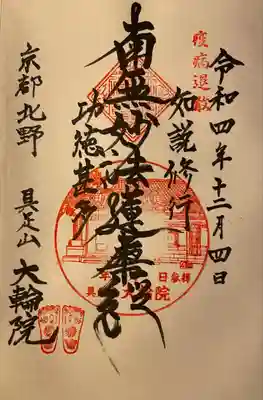 疫病退散
令和四年十二月四日
如説修行
南無妙法蓮華経
功徳甚多
京都北野
具足山 大輪院